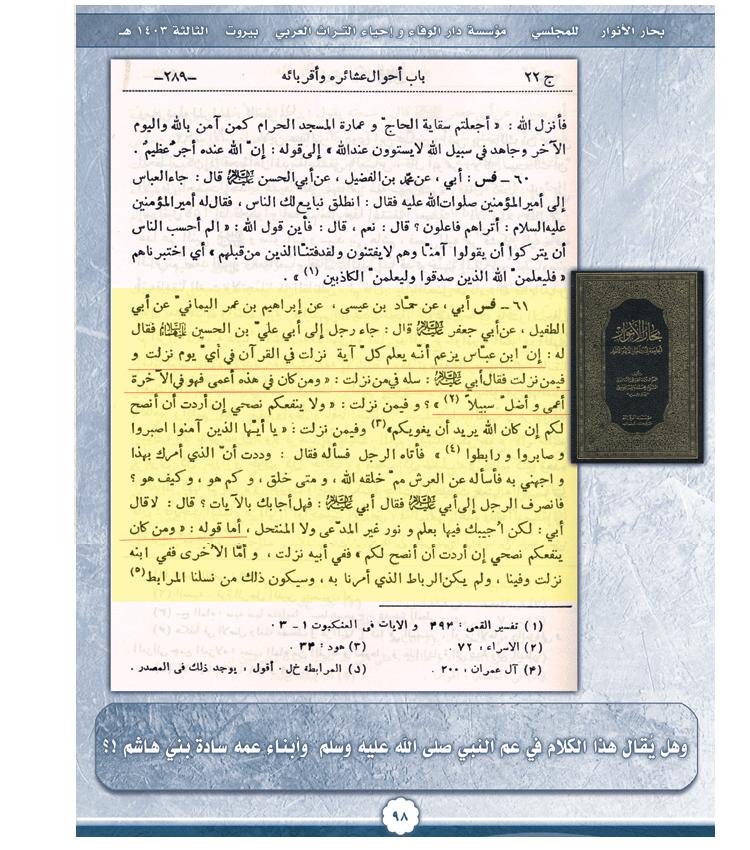 بحار الأنوار للمجلسي مؤسسة دار الوفاء و إحياء التراث العربي بيروت الثالثة ١٤٠٣ هـ
ج ٢٢ باب أحوال عشائره وأقربائه -٢٨٩-
فأنزل الله : « أجعلتم سقاية الحاجّ و عمارة المسجد الحرام كمن آمن بالله واليوم
الآخر وجاهد في سبيل الله لا يستوون عندالله » إلى قوله : إنّ الله عنده أجرٌ عظيمٌ .
٦٠ - فس : أبي ، عن محمد بن الفضيل ، عن أبي الحسن عليه السلام قال : جاء العباس
إلى أمير المؤمنين صلوات الله عليه فقال : انطلق نبايع لك الناس ، فقال له أمير المؤمنين
عليه السلام : أتراهم فاعلون ؟ قال : نعم ، قال : فأين قول الله : « الم أحسب الناس
أن يتركوا أن يقولوا آمنّا وهم لا يفتنون ولقد فتنّا الذين من قبلهم » أي اختبرناهم
« فليعلمنّ الله الذين صدقوا وليعلمنّ الكاذبين (١) » .
٦١ - فس أبي ، عن حمّاد بن عيسى ، عن إبراهيم بن عمر اليمانيّ عن أبي
الطفيل ، عن أبي جعفر عليه السلام قال : جاء رجل إلى أبي عليّ بن الحسين عليهما السلام فقال
له : إنّ ابن عبّاس يزعم أنّه يعلم كلّ آية نزلت في القرآن في أيّ يوم نزلت و
فيمن نزلت فقال أبي عليه السلام : سله في من نزلت : « ومن كان في هذه أعمى فهو في الآخرة
أعمى و أضلّ سبيلاً (٢) » ؟ و فيمن نزلت : « ولا ينفعكم نصحي إن أردت أن أنصح
لكم إن كان الله يريد أن يغويكم» (٣) وفيمن نزلت : « يا أيّها الذين آمنوا اصبروا
و صابروا و رابطوا (٤) » فأتاه الرجل فسأله فقال : وددت أنّ الذي أمرك بهذا
و اجهني به فأسأله عن العرش ممّ خلقه الله ، و متى خلق ، و كم هو ، و كيف هو ؟
فانصرف الرجل إلى أبي عليه السلام فقال أبي عليه السلام : فهل أجابك بالآيات ؟ قال : لا قال
أبي : لكن اُجيبك فيها بعلم و نور غير المدّعى ولا المنتحل ، أما قوله : « ومن كان
ينفعكم نصحي إن أردت أن أنصح لكم » ففي أبيه نزلت ، و أمّا الاُخرى ففي ابنه
نزلت وفينا ، ولم يكن الرباط الذي أمرنا به ، وسيكون ذلك من نسلنا المرابط (٥)
(١) تفسير القمى : ٤٩٤ و الايات فى العنكبوت ١ - ٣ .
(٢) الاسراء : ٧٢ . (٣) هود : ٣٤ .
(٤) آل عمران : ٢٠٠ . (٥) المرابطة خل . أقول : يوجد ذلك فى المصدر .
بحار الأنوار
وهل يُقال هذا الكلام في عم النبي صلى الله عليه وسلم وأبناء عمه سادة بني هاشم !؟
٩٨